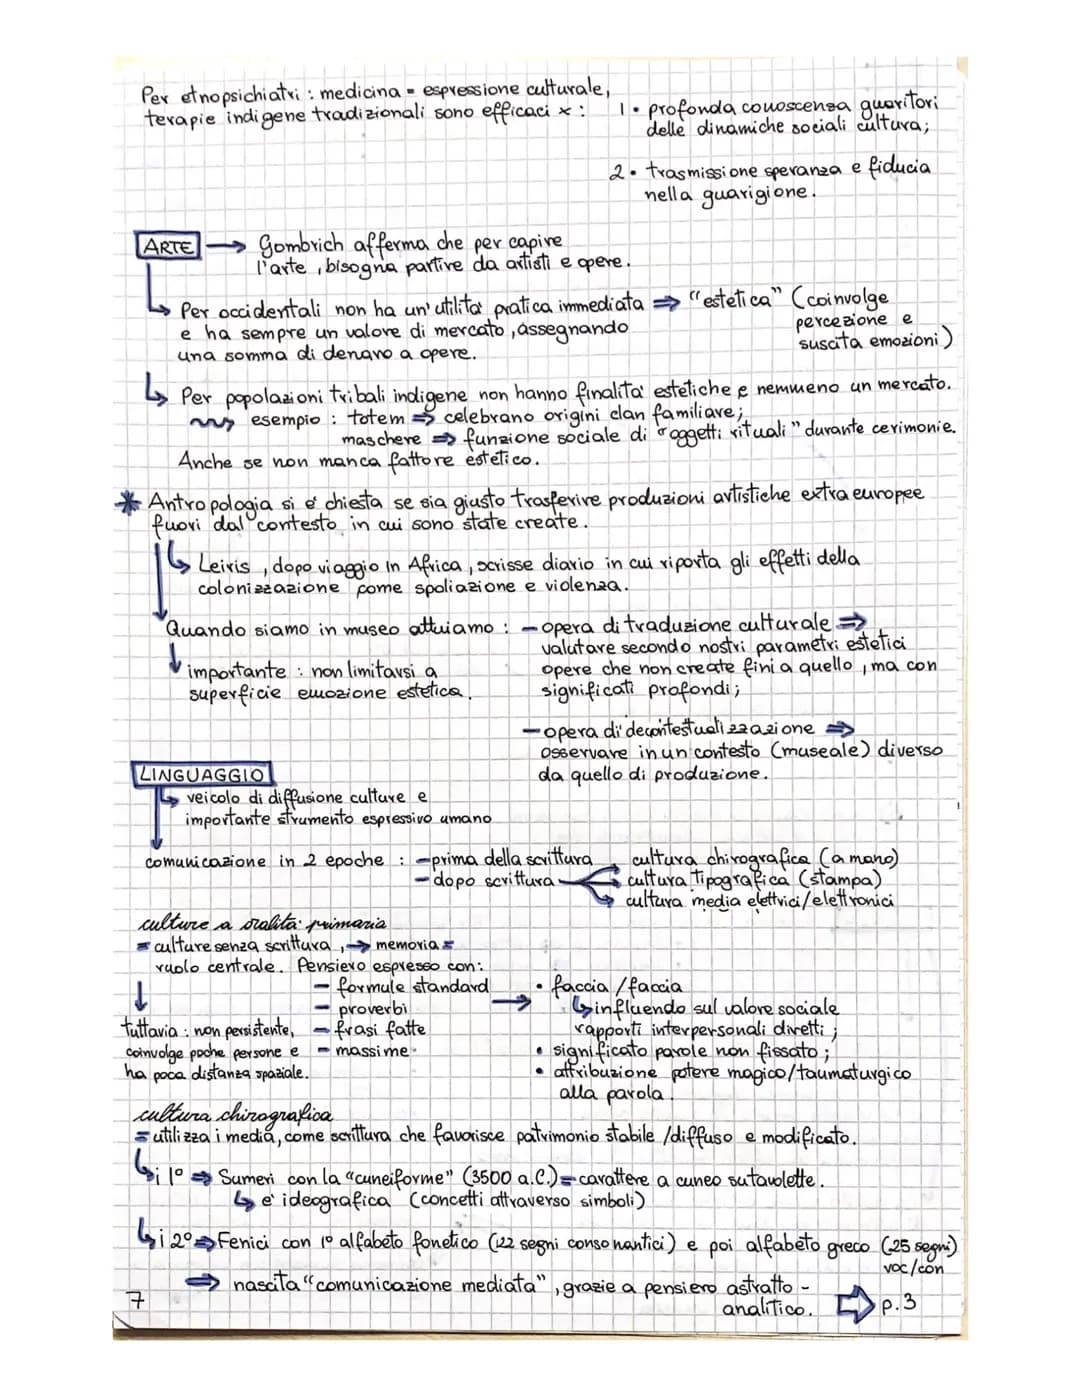 Per etnopsichiatri : medicina = espressione culturale,
terapie indigene tradizionali sono efficaci x :
1 • profonda conoscenza guaritori
delle dinamiche sociali cultura;
2 • trasmissione speranza e fiducia
nella guarigione.
ARTE → Gombrich afferma che per capire
l'arte, bisogna partire da artisti e opere.
↳ Per occidentali non ha un'utilità pratica immediata ⇒ "estetica" (coinvolge
percezione e
suscita emozioni)
e ha sempre un valore di mercato, assegnando
una somma di denaro a opere.
↳ Per popolazioni tribali indigene non hanno finalità estetiche e nemmeno un mercato.
esempio : totem ⇒ celebrano origini clan familiare;
maschere ⇒ funzione sociale di "oggetti rituali" durante cerimonie.
Anche se non manca fattore estetico.
* Antropologia si è chiesta se sia giusto trasferire produzioni artistiche extraeuropee
fuori dal contesto in cui sono state create.
↳ Leiris, dopo viaggio in Africa, scrisse diario in cui riporta gli effetti della
colonizzazione come spoliazione e violenza.
Quando siamo in museo attuiamo : - opera di traduzione culturale ⇒
valutare secondo nostri parametri estetici
opere che non create fini a quello, ma con
significati profondi;
↓ importante : non limitarsi a
superficie emozione estetica.
- opera di decontestualizzazione ⇒
osservare in un contesto (museale) diverso
da quello di produzione.
LINGUAGGIO
↳ veicolo di diffusione culture e
importante strumento espressivo umano
comunicazione in 2 epoche : - prima della scrittura
- dopo scrittura
cultura chirografica (a mano)
cultura tipografica (stampa)
cultura media elettrici/elettronici
culture a oralità primaria
= culture senza scrittura, → memoria =
ruolo centrale. Pensiero espresso con:
- formule standard
- proverbi
- frasi fatte
- massime
↓
tuttavia : non persistente,
coinvolge poche persone e
ha poca distanza spaziale.
→ • faccia/faccia
↳ influendo sul valore sociale
rapporti interpersonali diretti;
• significato parole non fissato;
• attribuzione potere magico/taumaturgico
alla parola.
cultura chirografica
= utilizza i media, come scrittura che favorisce patrimonio stabile/diffuso e modificato.
↳ i 1° ⇒ Sumeri con la "cuneiforme" (3500 a.C.) = carattere a cuneo su tavolette.
↳ è ideografica (concetti attraverso simboli)
↳ i 2° ⇒ Fenici con 1° alfabeto fonetico (22 segni consonantici) e poi alfabeto greco (25 segni)
voc/con
⇒ nascita "comunicazione mediata", grazie a pensiero astratto -
analitico. ⇨ p.3
7